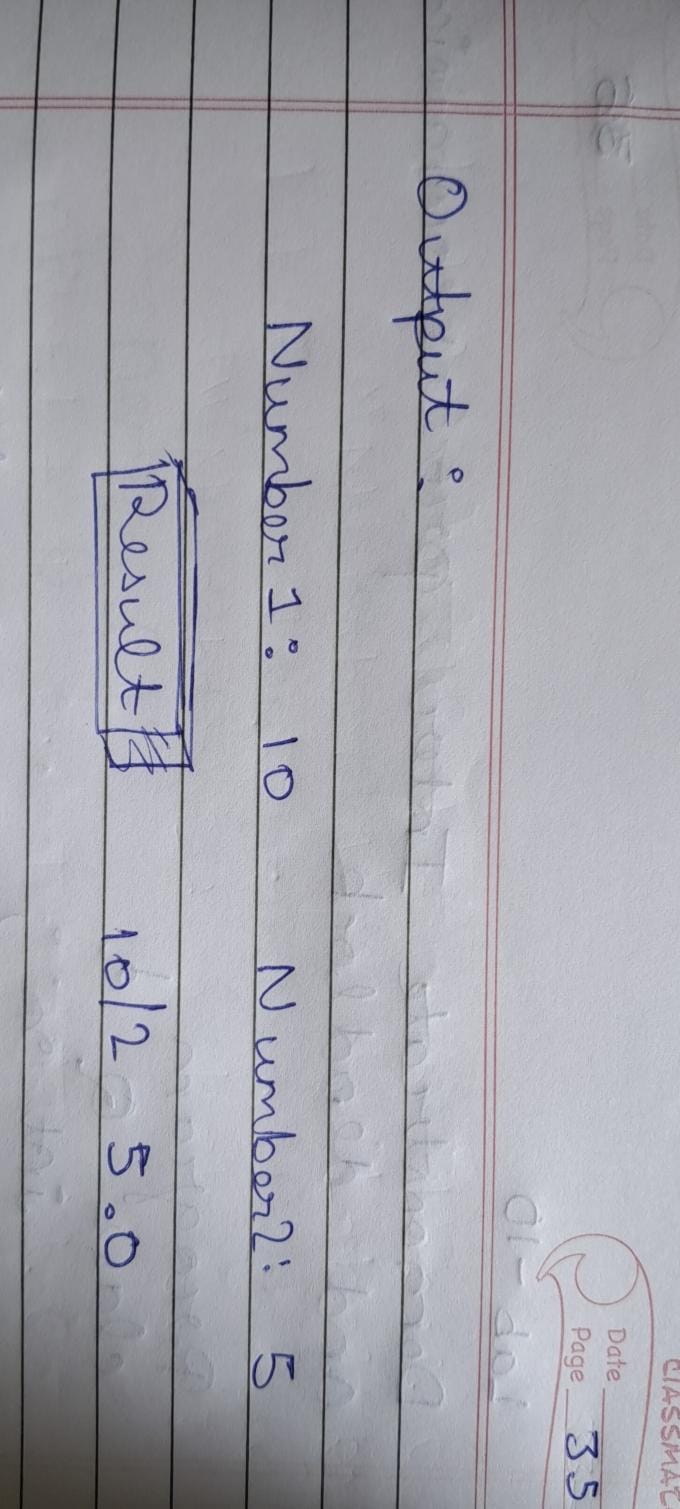 CLASSMATE
Date
Page 35
Output :
Number 1: 10 Number2: 5
Result 10/2 = 5.0